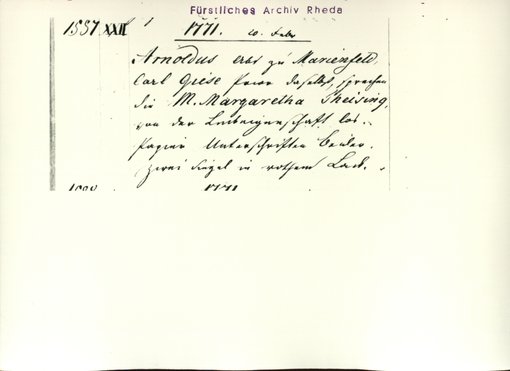 Fürstliches Archiv Rheda
1537 XXII 1771. 20. Febr
Arnoldus Abt zu Marienfeld,
Carl Giese Prior daselbst, sprechen
die M. Margaretha Theising,
von der Leibeigenschaft los..
Papier Unterschriften beider.
zwei Siegel in rothem Lack.
1771